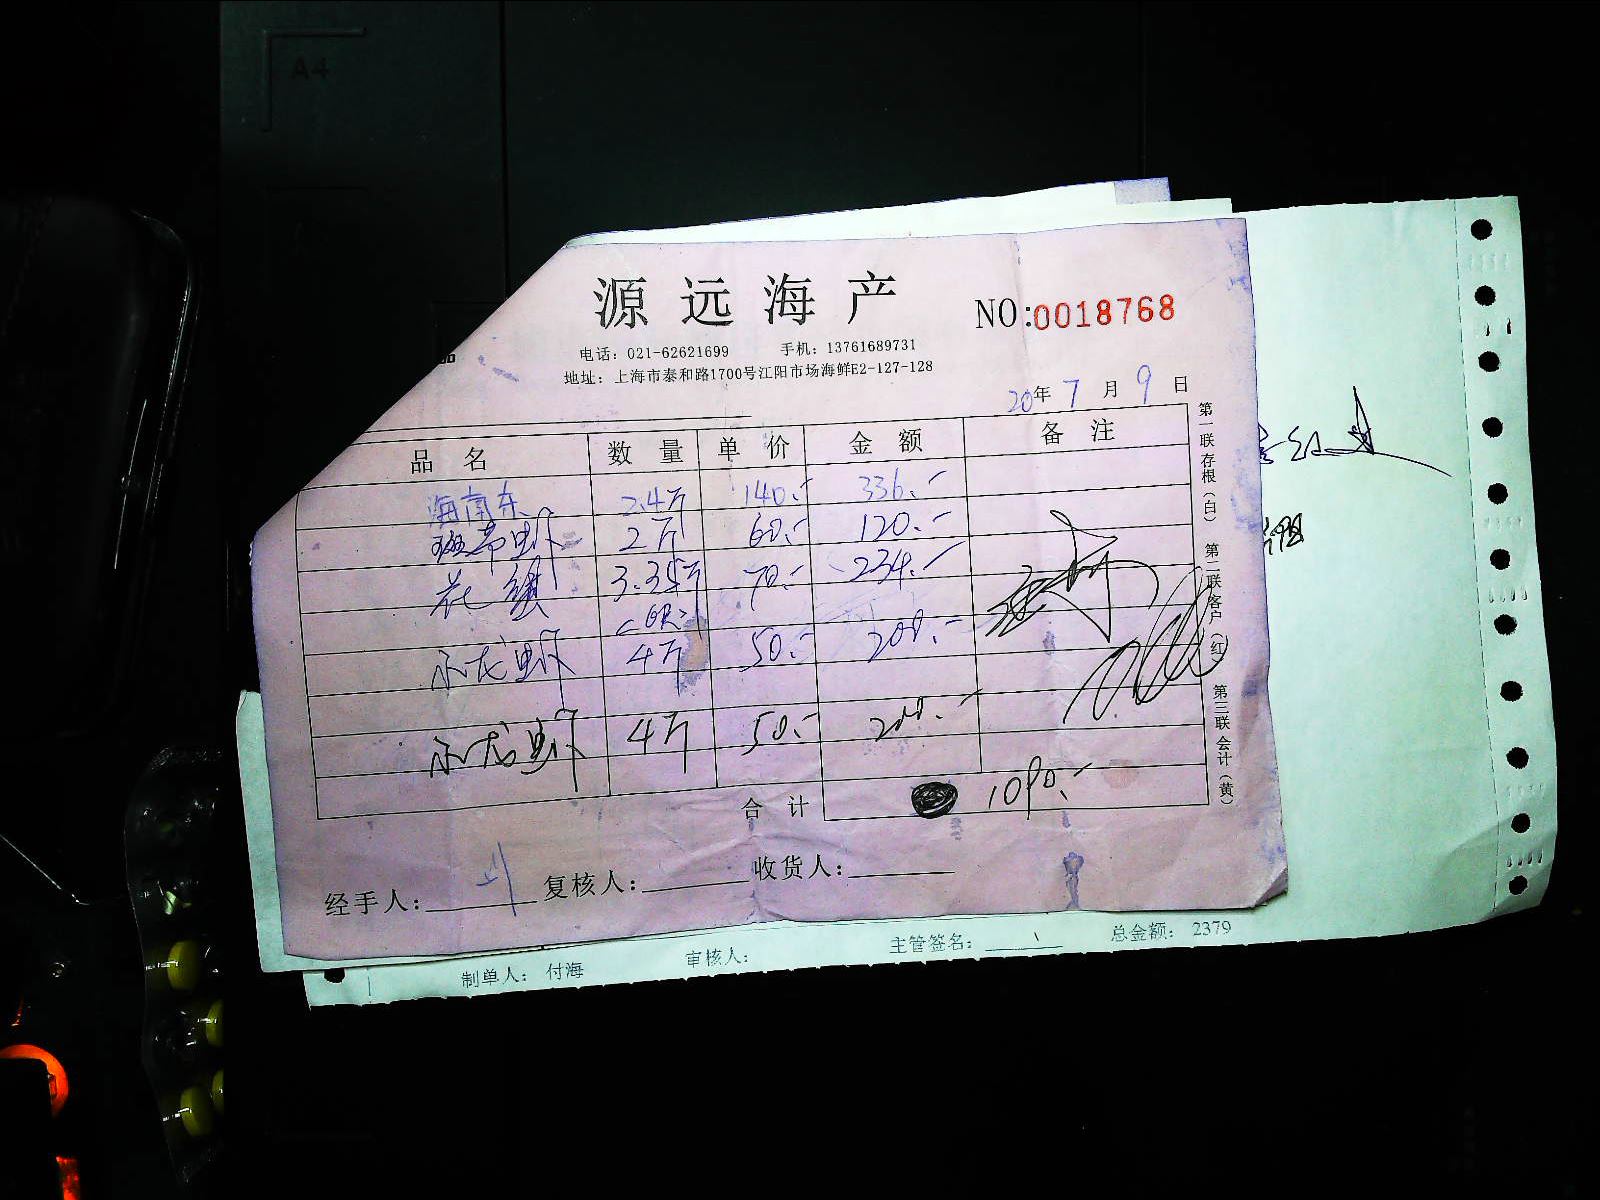 A4
源远海产
NO:0018768
电话：021-62621699 手机：13761689731
地址：上海市泰和路1700号江阳市场海鲜E2-127-128
20年 7 月 9 日
品名 数量 单价 金额 备注
海南东 2.4斤 140.- 336.-
斑节虾 2斤 60.- 120.-
花 3.35斤 70.- 234.-
小龙虾 4斤 50.- 200.-
小龙虾 4斤 50.- 200.-
合计 1090.-
经手人： 复核人： 收货人：
第一联存根（白） 第二联客户（红） 第三联会计（黄）
制单人： 付海 审核人： 主管签名： 总金额： 2379